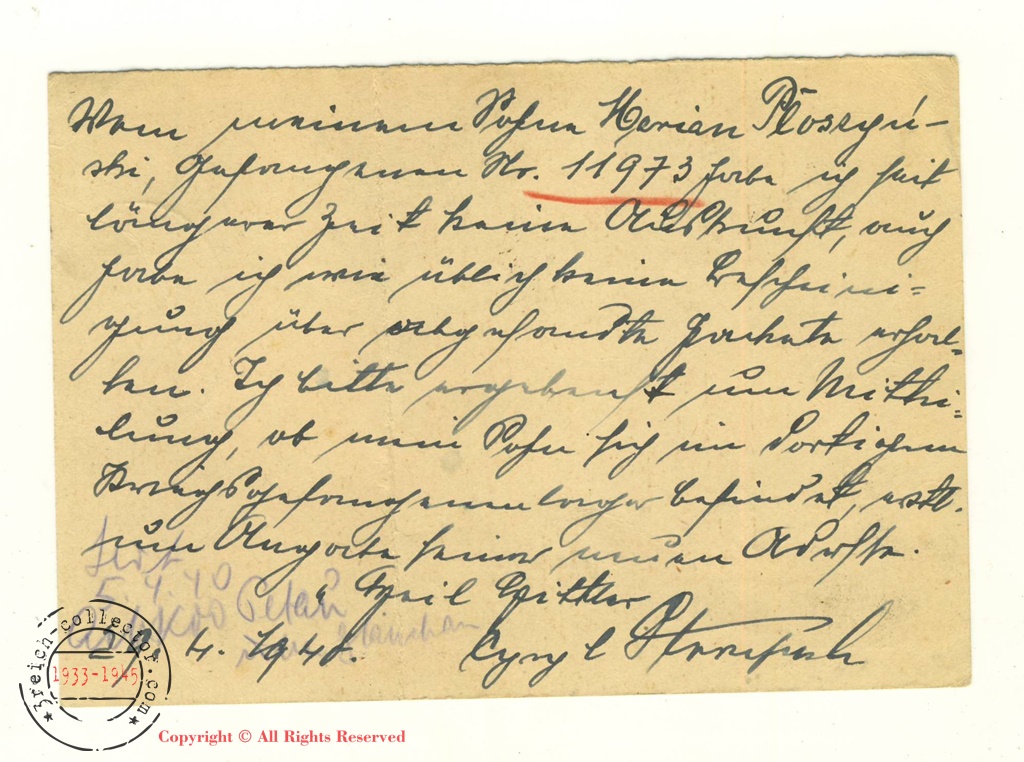 Von meinem Sohne Marian Płoszyń-
ski, Gefangenen Nr. 11973 habe ich seit
längerer Zeit keine Auskunft, auch
habe ich wie üblich keine Bescheini=
gung über abgesandte Packete erhal=
ten. Ich bitte ergebenst um Mittei=
lung, ob mein Sohn sich im dortigem
Kriegsgefangenenlager befindet, evtl.
um Angabe seiner neuen Adresse.
Heil Hittler
4. 1940. Cyryl
5.4.40
3reich-collector.com
1933-1945
Copyright © All Rights Reserved